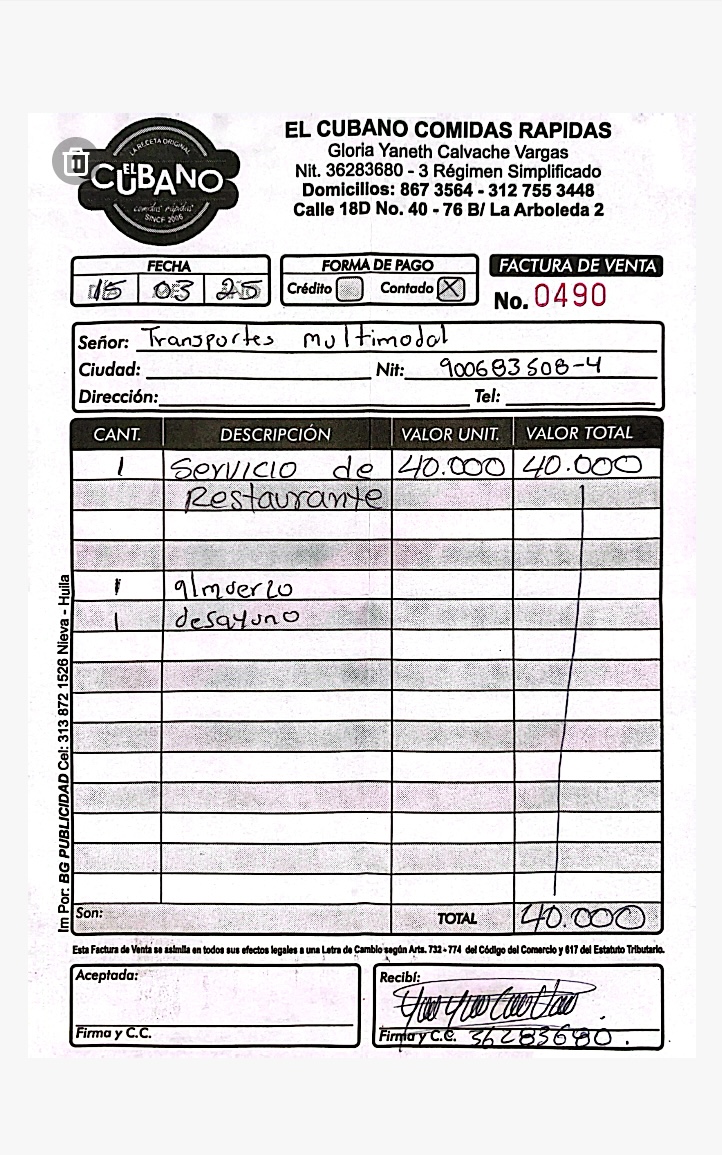 LA RECETA ORIGINAL
EL CUBANO
comidas rápidas
SINCE 2006
EL CUBANO COMIDAS RAPIDAS
Gloria Yaneth Calvache Vargas
Nit. 36283680 - 3 Régimen Simplificado
Domicilios: 867 3564 - 312 755 3448
Calle 18D No. 40 - 76 B/ La Arboleda 2
FECHA
15 03 25
FORMA DE PAGO
Crédito Contado X
FACTURA DE VENTA
No. 0490
Señor: Transportes multimodal
Ciudad: Nit: 900683508-4
Dirección: Tel:
CANT. DESCRIPCIÓN VALOR UNIT. VALOR TOTAL
1 Servicio de 40.000 40.000
Restaurante
1 almuerzo
1 desayuno
Son: TOTAL 40.000
Esta Factura de Venta se asimila en todos sus efectos legales a una Letra de Cambio según Arts. 732 - 774 del Código del Comercio y 617 del Estatuto Tributario.
Aceptada:
Firma y C.C.
Recibí:
Firma y C.C. 36283680.
Im Por: BG PUBLICIDAD Cel: 313 872 1526 Nieva - Huila